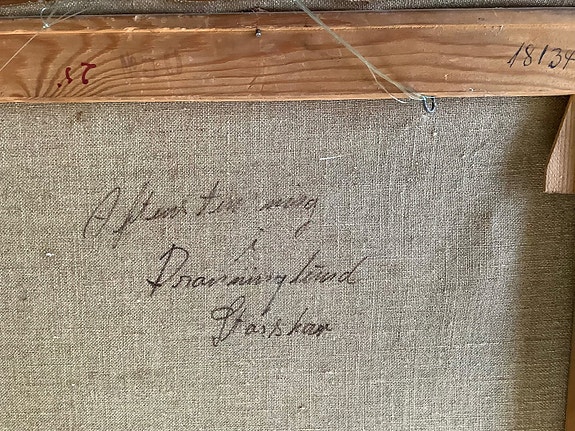 18134
25
Aftenstemning
i
Dronninglund
Storskov